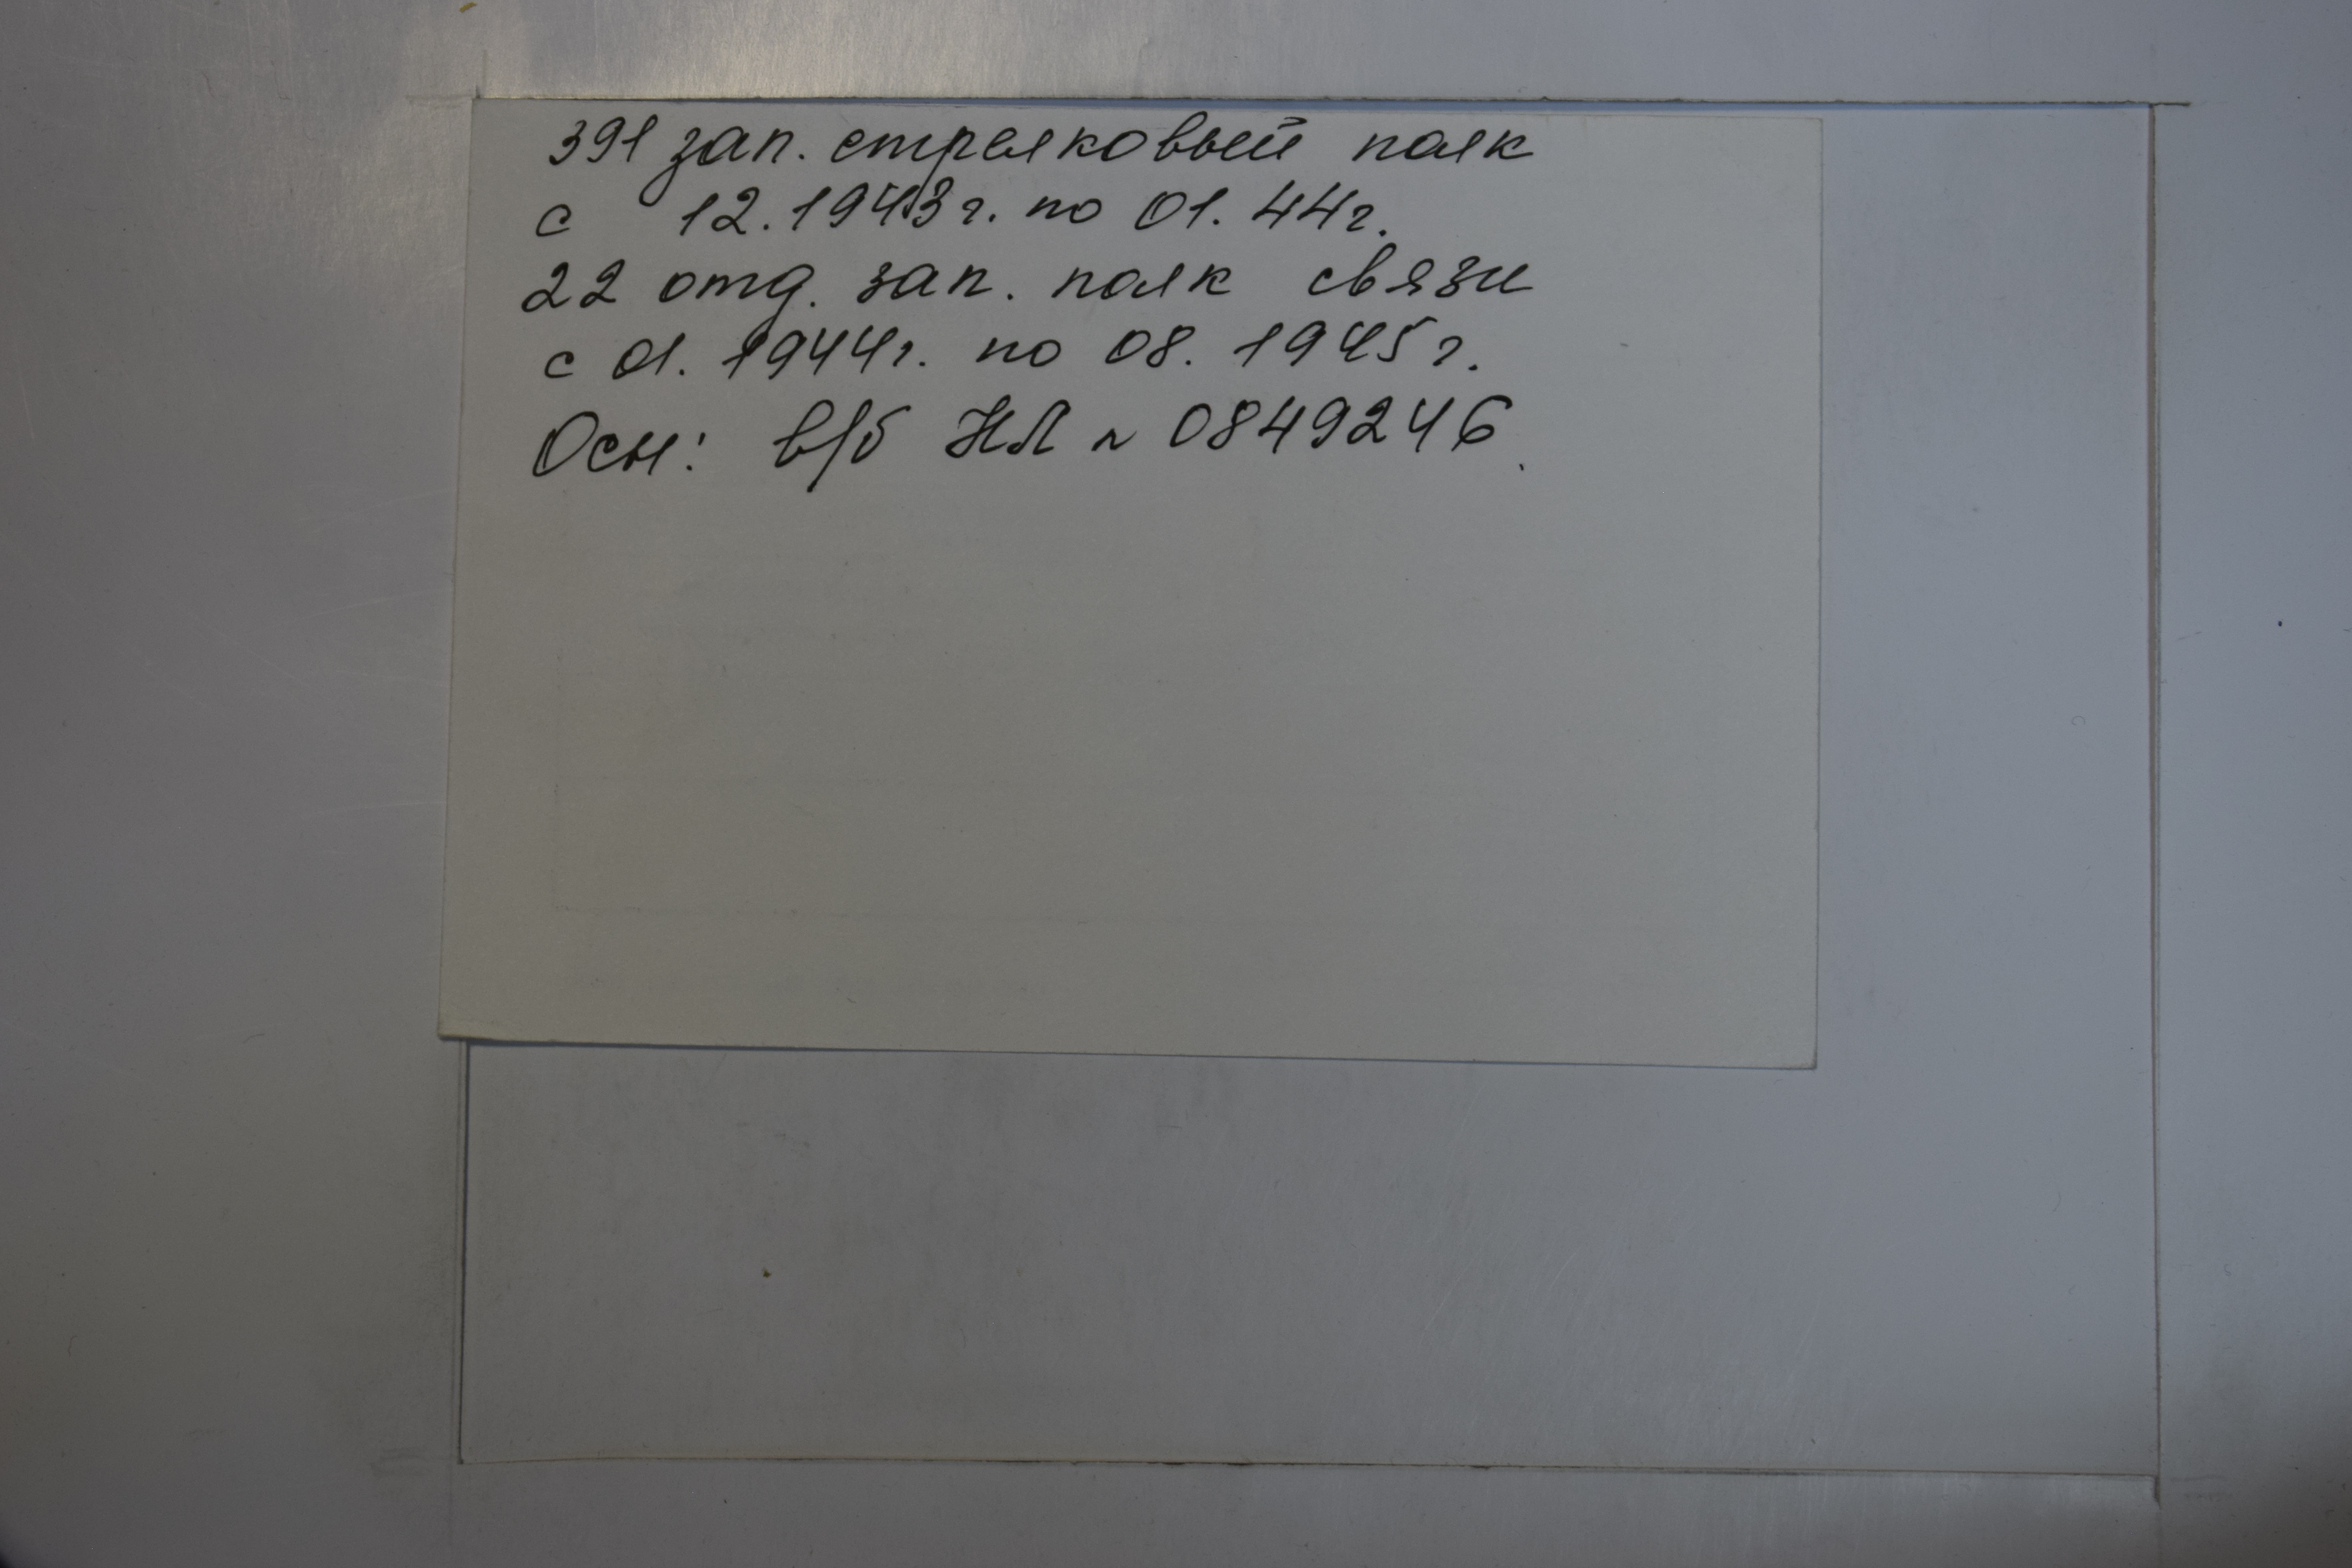 391 зап. стрелковый полк
с 12.1943г. по 01.44г.
22 отд. зап. полк связи
с 01.1944г. по 08.1945г.
Осн: в/б НЛ № 0849246.